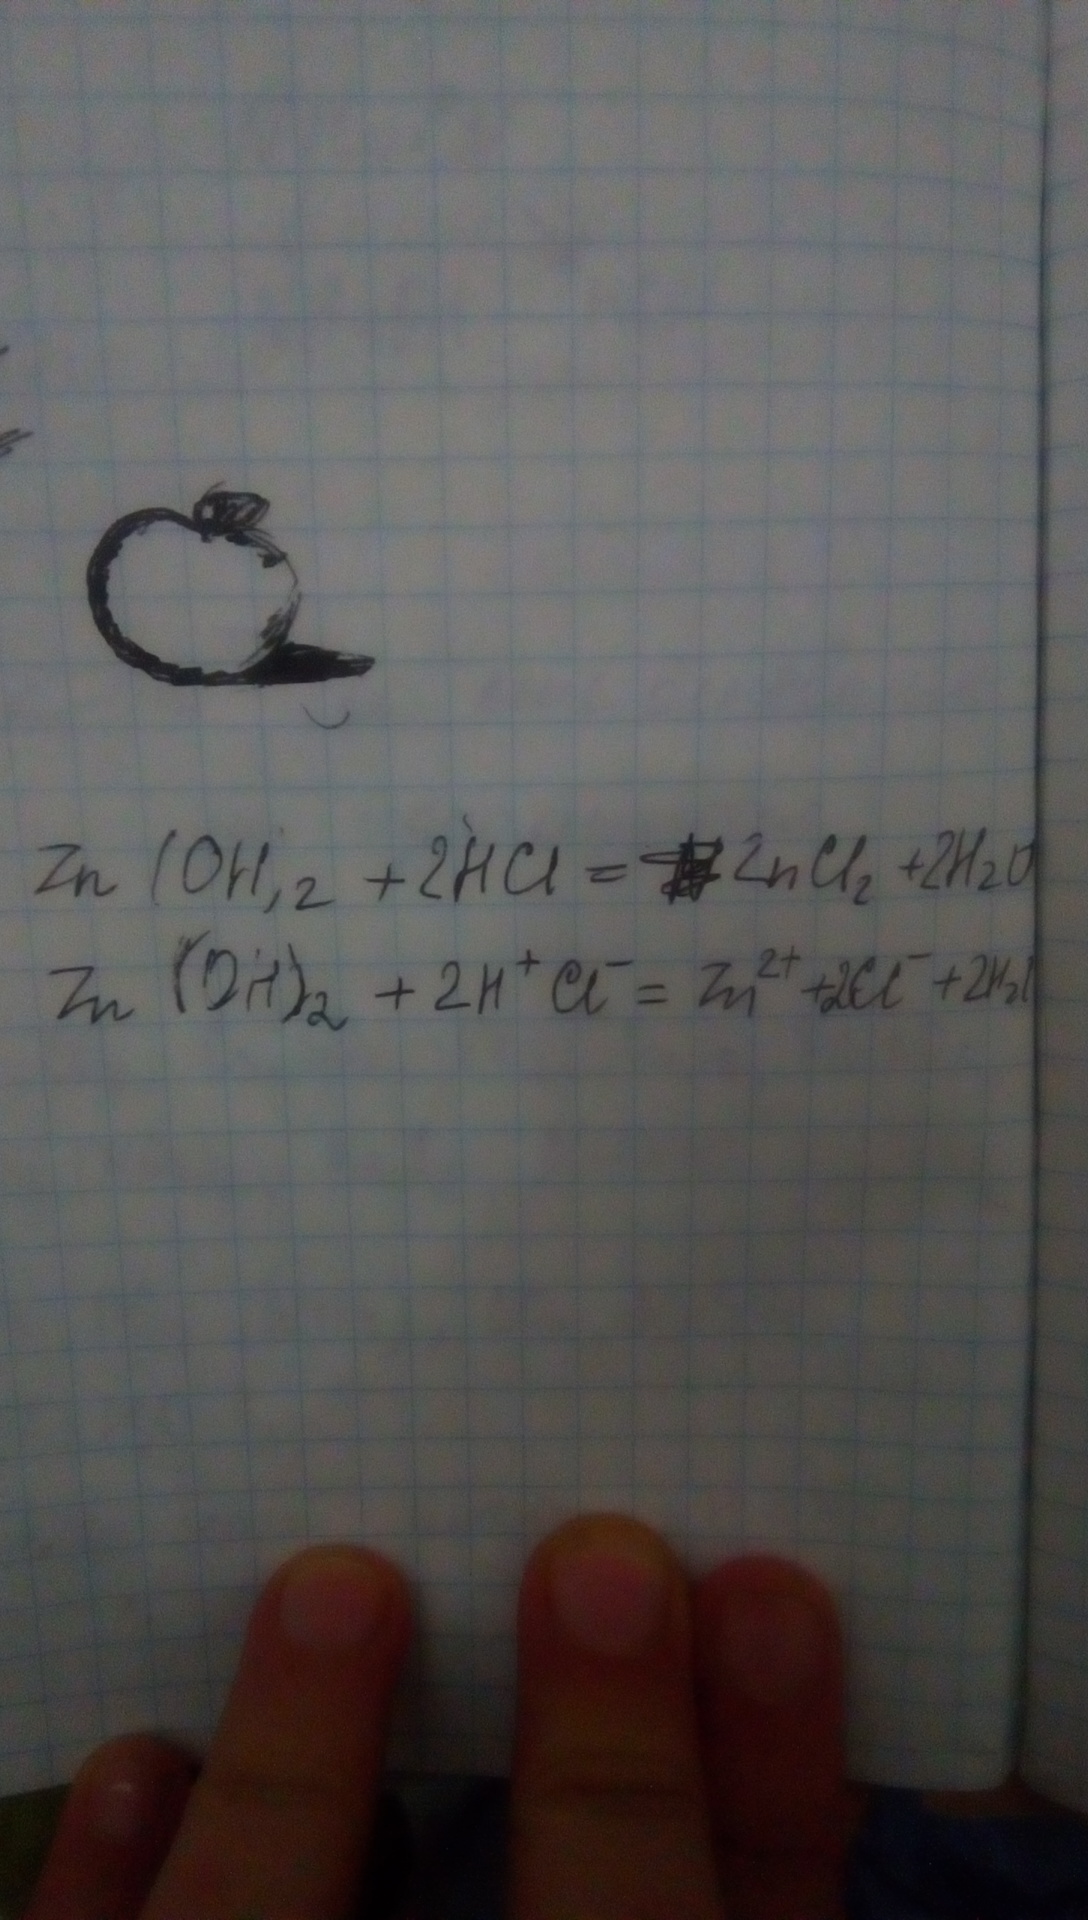 Zn (OH)2 + 2HCl = ZnCl2 + 2H2O
Zn (OH)2 + 2H+ Cl- = Zn2+ + 2Cl- + 2H2O